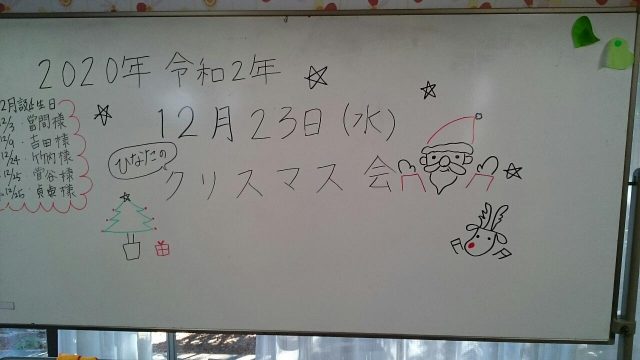 2020年 令和2年
12月23日(水)
ひなたの
クリスマス会
12月誕生日
12/3 當間様
12/9 吉田様
12/24 竹内様
12/25 菅谷様